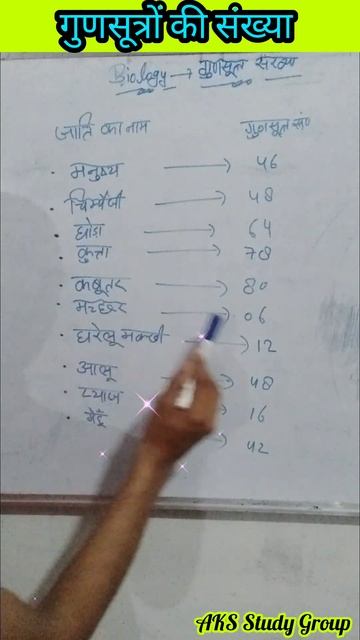 गुणसूत्रों की संख्या
Biology → गुणसूत्र संख्या
जाति का नाम गुणसूत्र सं०
• मनुष्य → 46
• चिम्पैंजी → 48
• घोडा → 64
• कुत्ता → 78
• कबूतर → 80
• मच्छर → 06
• घरेलू मक्खी → 12
• आलू → 48
• प्याज → 16
• गेहूँ → 42
AKS Study Group